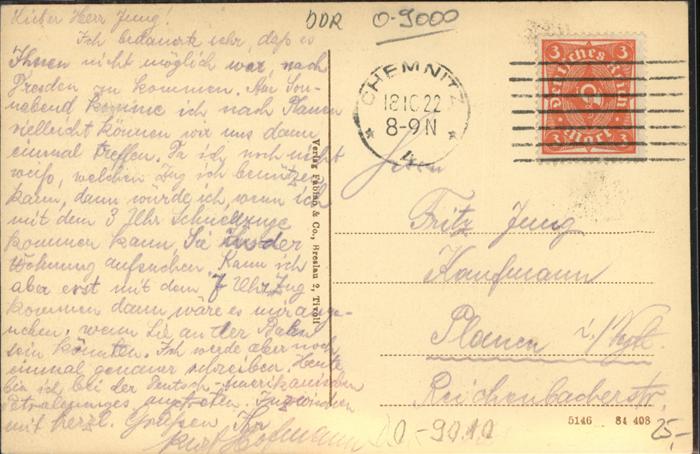 Lieber Herr Jung!
Ich bedauerte sehr, daß es
Ihnen nicht möglich war, nach
Dresden zu kommen. Am Son-
nabend komme ich nach Plauen
vielleicht können wir uns dann
einmal treffen. Da ich noch nicht
weiß, welchen Zug ich benützen
kann, dann würde ich wenn ich
mit dem 3 Uhr Schnellzuge
kommen kann, Sie in der
Wohnung aufsuchen. Kann ich
aber erst mit dem 7 Uhr Zug
kommen dann wäre es mir ange-
nehm, wenn Sie an der Bahn
sein könnten. Ich werde aber noch
einmal genauer schreiben. Heute
bin ich bei der Deutsch-Amerikanischen
Inzwischen
mit herzl. Grüßen Ihr
Kurt Hofmann
DDR 0-9000
CHEMNITZ
18 10 22
8-9 N
* 4 *
3 3
Deutsches Reich
Mark
3 3
Verlag Fabino & Co., Breslau 2, Tivoli
Herrn
Fritz Jung
Kaufmann
Plauen i/Vgtl.
Reichenbacherstr.
5146 84 408
0-9010
25,-